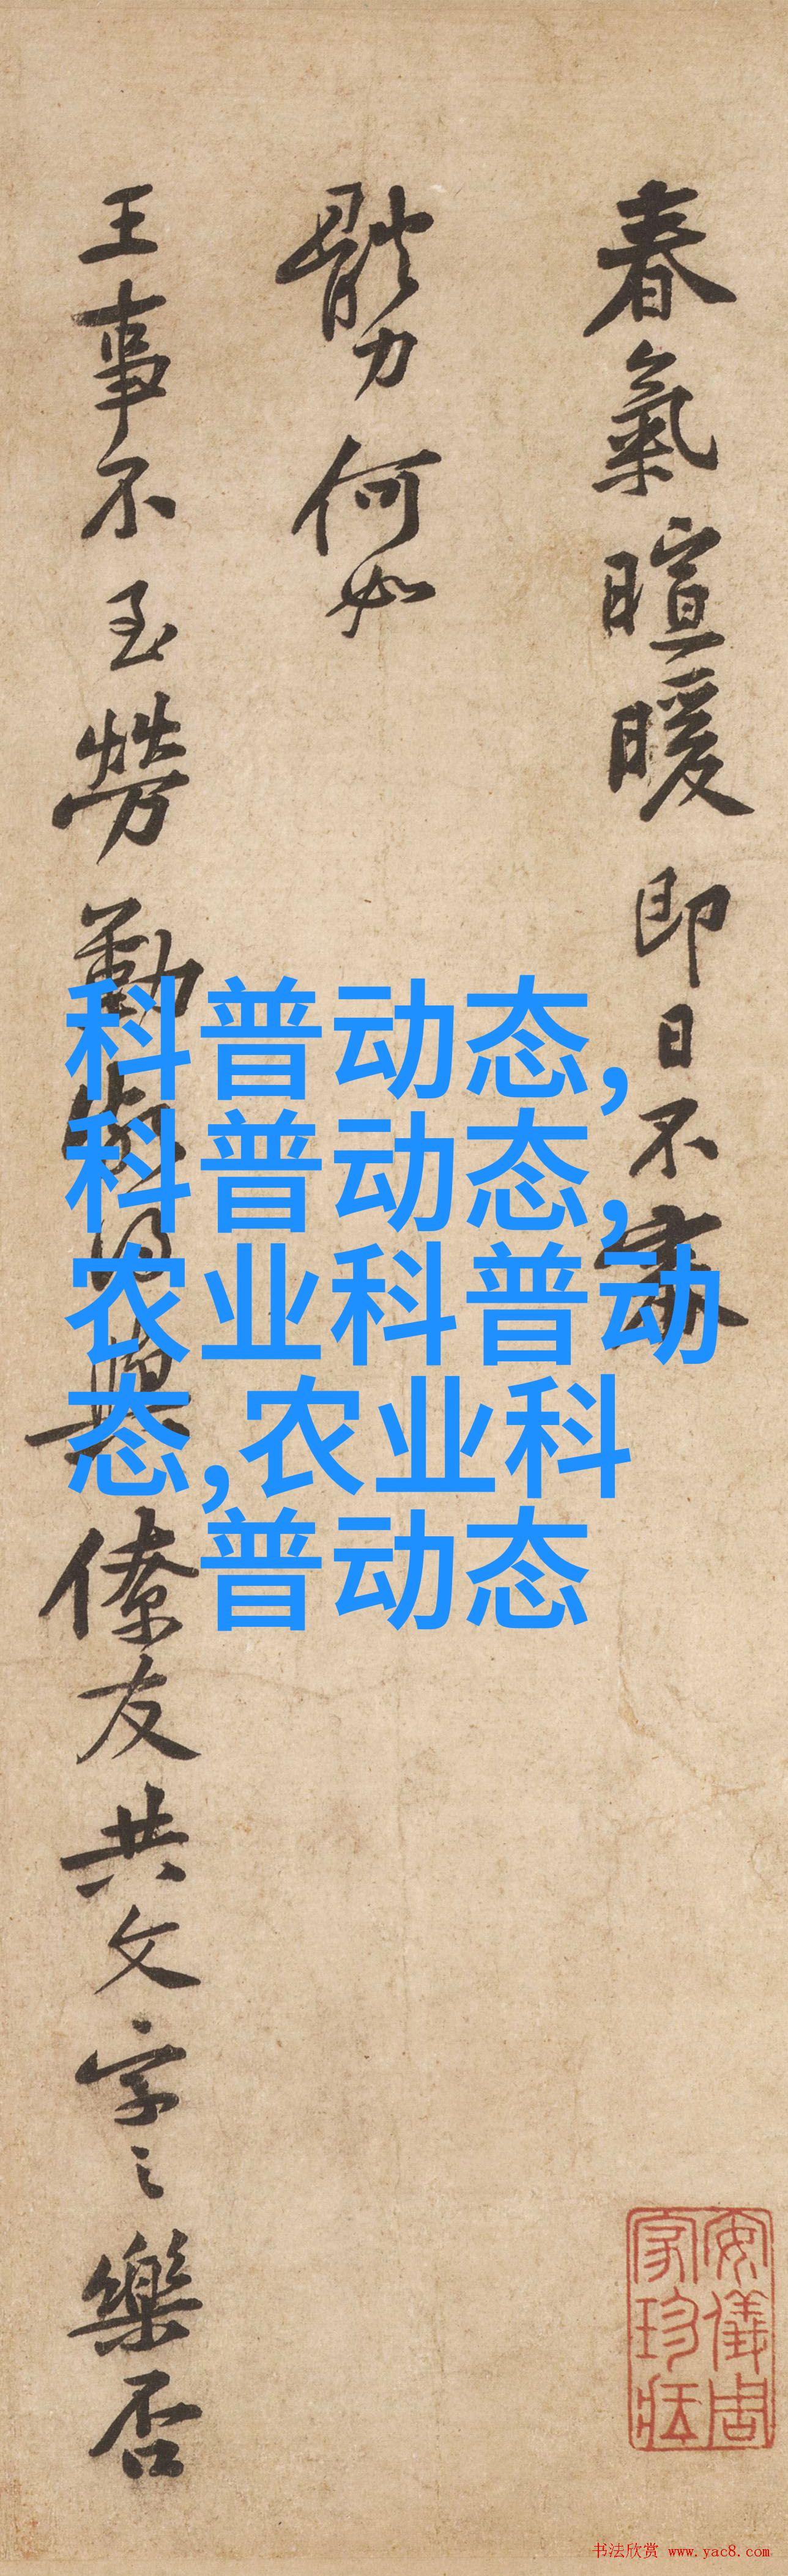 春氣暄暖即日不審
體力何如
王事不至勞勤
與僚友共文字之樂否
科普动态,
科普动态,
农业科普动
态,农业科
普动态
安儀周
家珍藏
书法欣赏 www.yac8.com